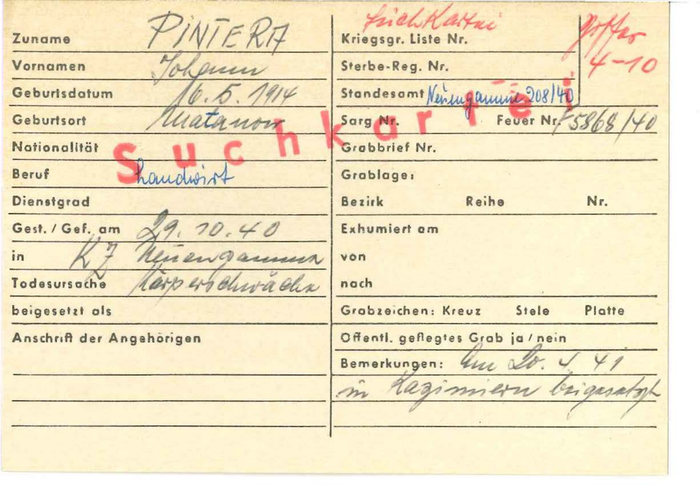 Zuname PINTERA
Vornamen Johann
Geburtsdatum 16.5.1914
Geburtsort
Nationalität
Beruf Landwirt
Dienstgrad
Gest. / Gef. am 29.10.40
in KZ Neuengamme
Todesursache Körperschwäche
beigesetzt als
Anschrift der Angehörigen
Suchkartei
Kriegsgr. Liste Nr.
4-10
Sterbe-Reg. Nr.
Standesamt Neuengamme 208/40
Sarg Nr. Feuer Nr. 5868/40
Grabbrief Nr.
Grablage:
Bezirk Reihe Nr.
Exhumiert am
von
nach
Grabzeichen: Kreuz Stele Platte
Offentl. gepflegtes Grab ja / nein
Bemerkungen: Am 20.4.41
in Kazimiern beigesetzt